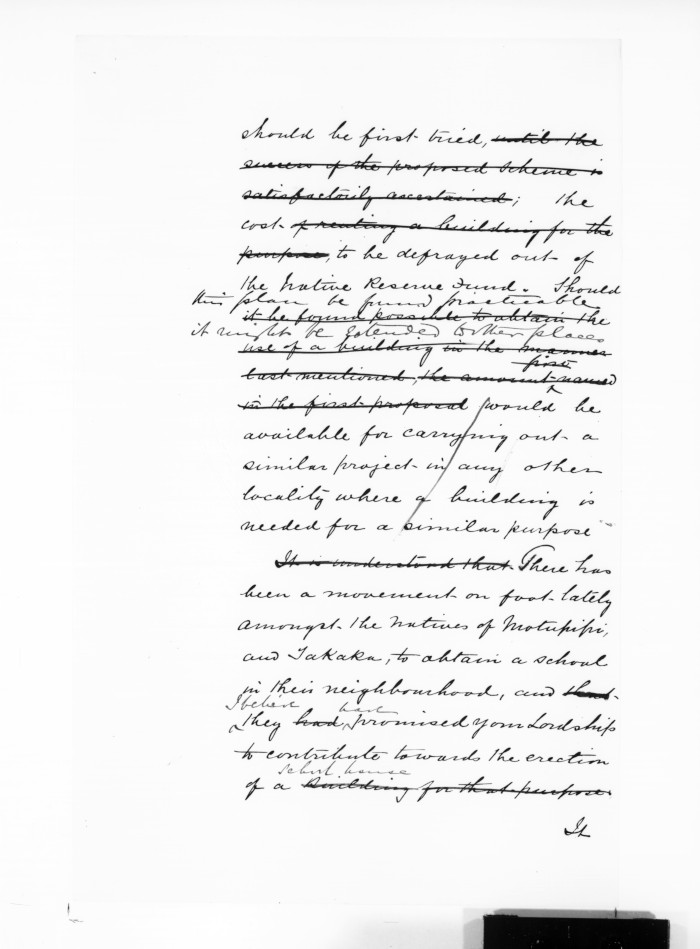 should be first tried, until the
success of the proposed Scheme is
satisfactorily ascertained; the
cost of renting a building for the
purpose, to be defrayed out of
the Native Reserve Fund. Should
this plan be found practicable
it be found possible to obtain the
it might be extended to other places
use of a building in the manner
first
last mentioned, the amount named
in the first proposal would be
available for carrying out a
similar project in any other
locality where a building is
needed for a similar purpose
It is understood that There has
been a movement on foot lately
amongst the Natives of Motupipi,
and Takaka, to obtain a school
in their neighbourhood, and that
I believe have
they had promised your Lordship
to contribute towards the erection
School house
of a building for that purpose.
It